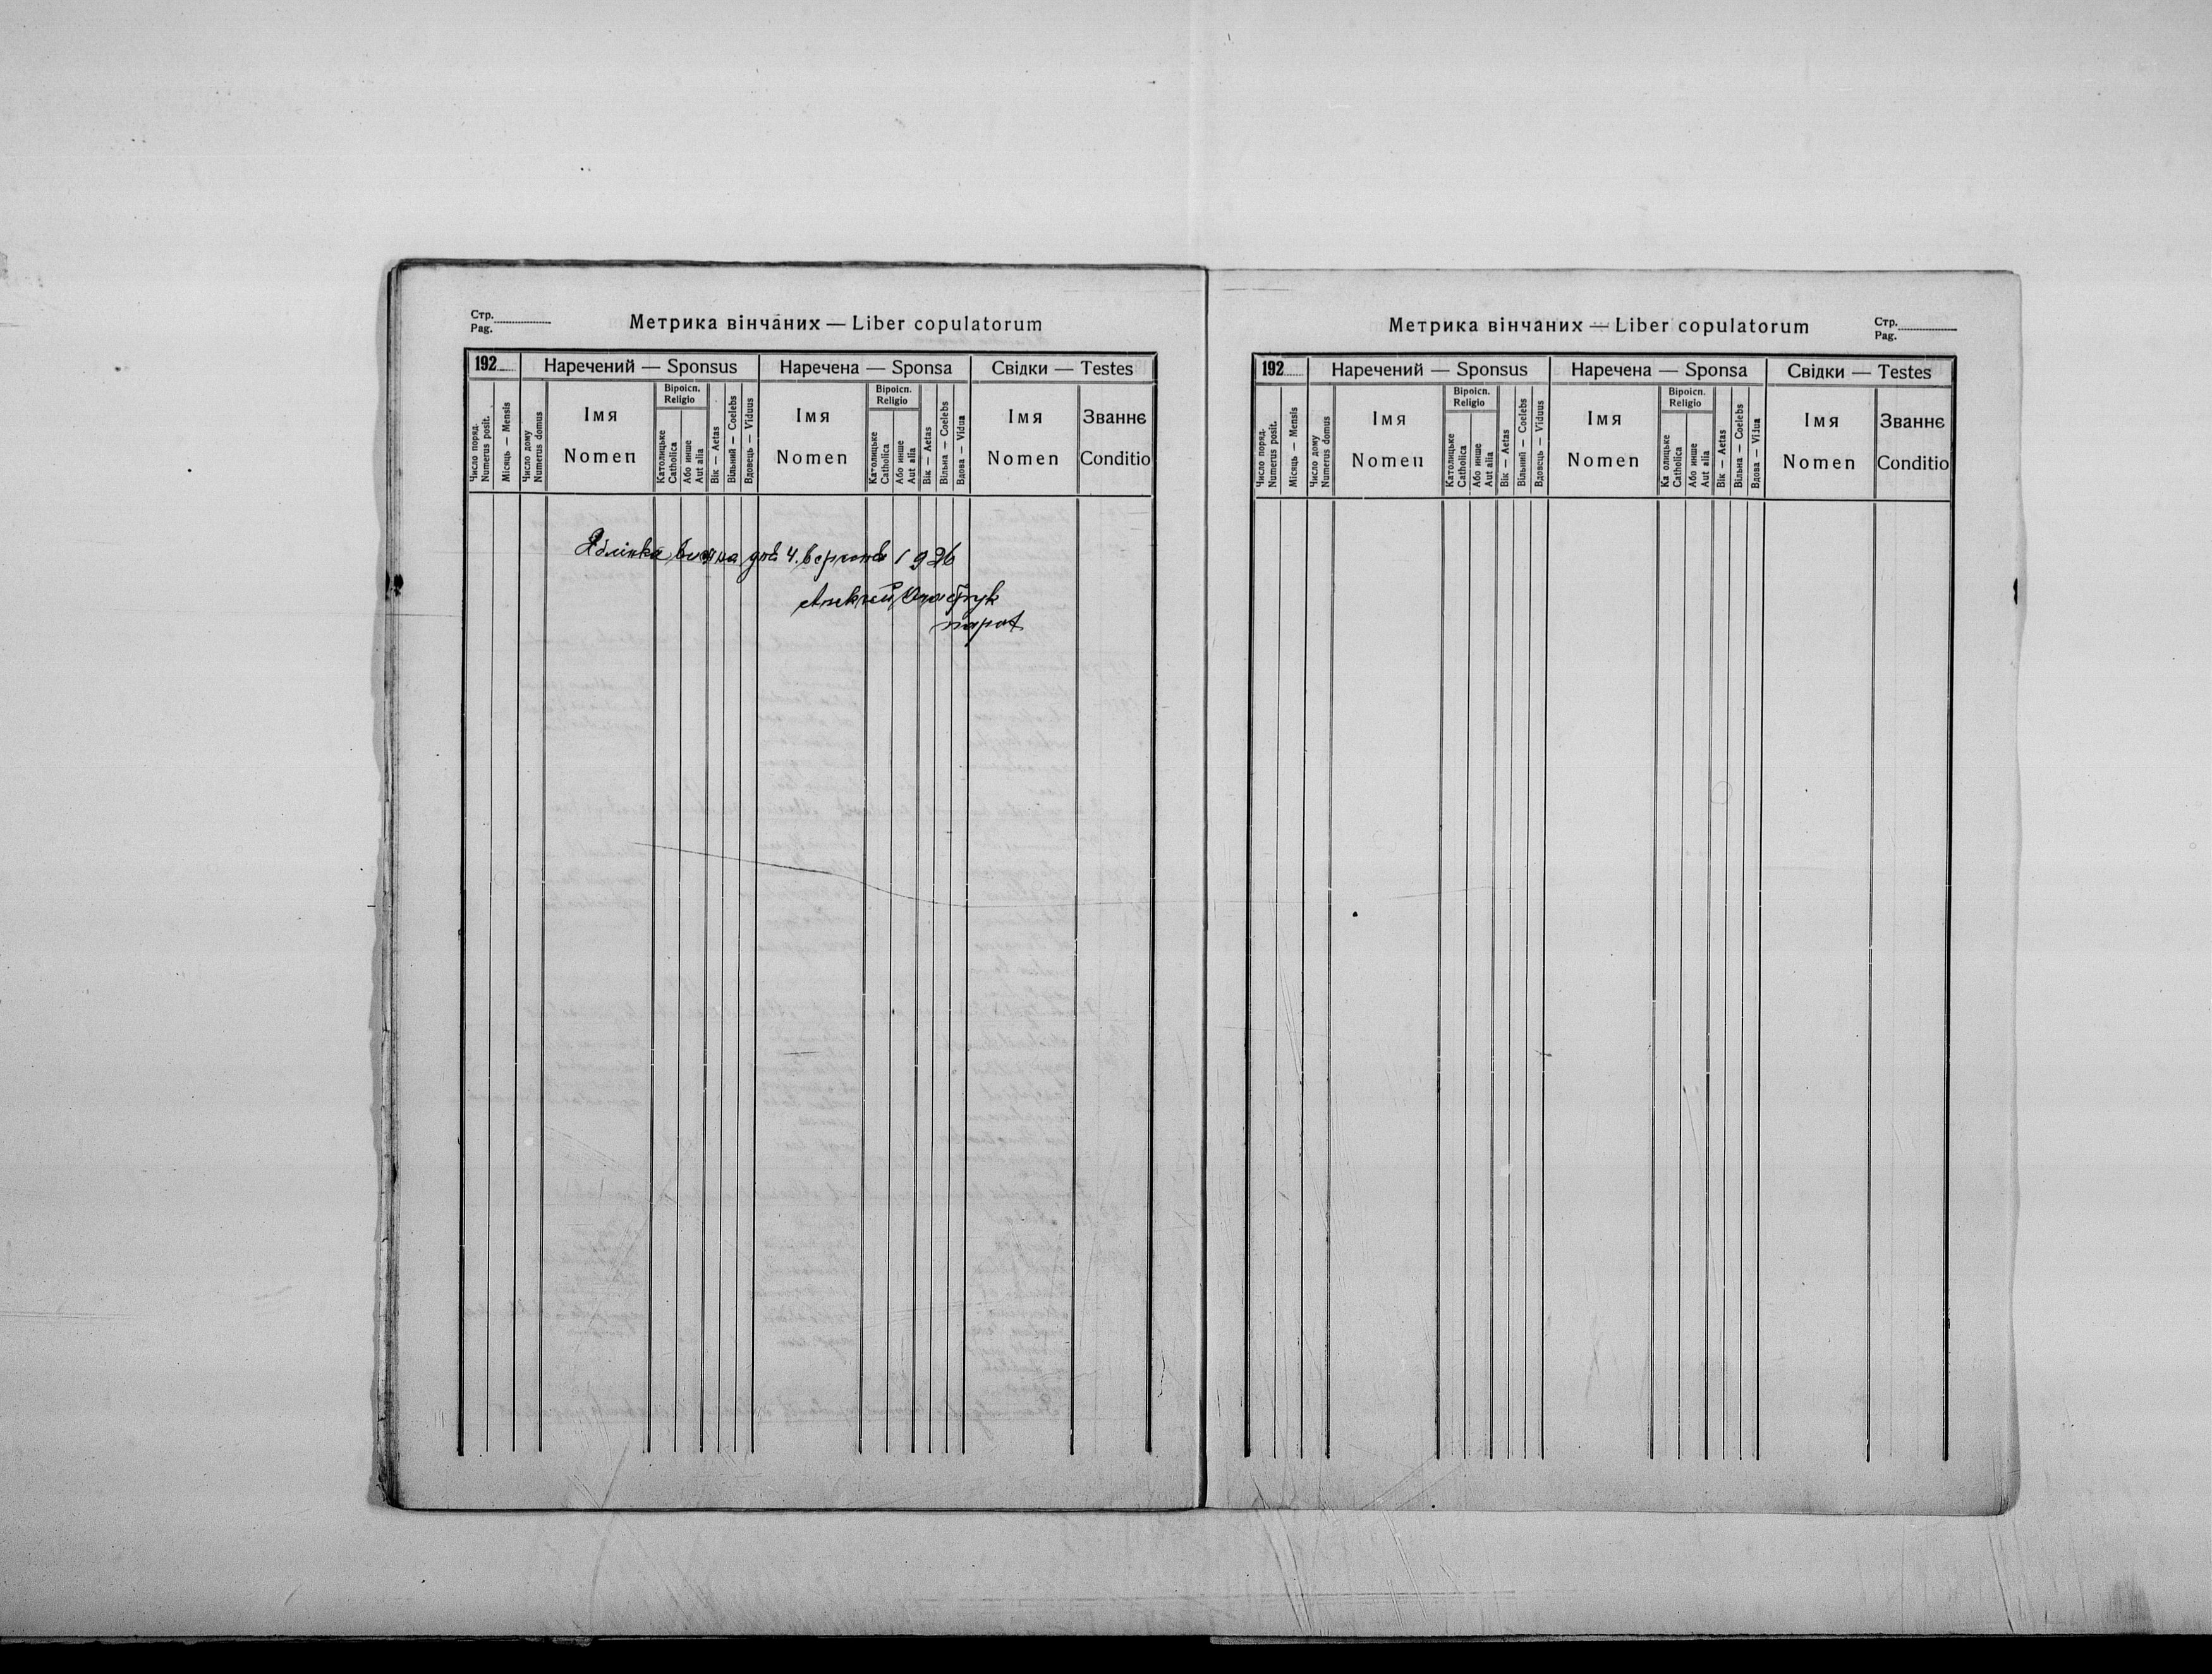 Стр.
Pag.
Метрика вінчаних — Liber copulatorum
192
Наречений — Sponsus
Наречена — Sponsa
Свідки — Testes
Число поряд.
Numerus posit.
Місяць — Mensis
Число дому
Numerus domus
Імя
Nomen
Віроісп.
Religio
Католицьке
Catholica
Або инше
Aut alia
Вік — Aetas
Вільний — Coelebs
Вдовець — Viduus
Імя
Nomen
Віроісп.
Religio
Католицьке
Catholica
Або инше
Aut alia
Вік — Aetas
Вільна — Coelebs
Вдова — Vidua
Імя
Nomen
Званнє
Conditio
дня 4. вересня 1926
парох
Метрика вінчаних — Liber copulatorum
Стр.
Pag.
192
Наречений — Sponsus
Наречена — Sponsa
Свідки — Testes
Число поряд.
Numerus posit.
Місяць — Mensis
Число дому
Numerus domus
Імя
Nomen
Віроісп.
Religio
Католицьке
Catholica
Або инше
Aut alia
Вік — Aetas
Вільний — Coelebs
Вдовець — Viduus
Імя
Nomen
Віроісп.
Religio
Ка олицьке
Catholica
Або инше
Aut alia
Вік — Aetas
Вільна — Coelebs
Вдова — Vidua
Імя
Nomen
Званнє
Conditio